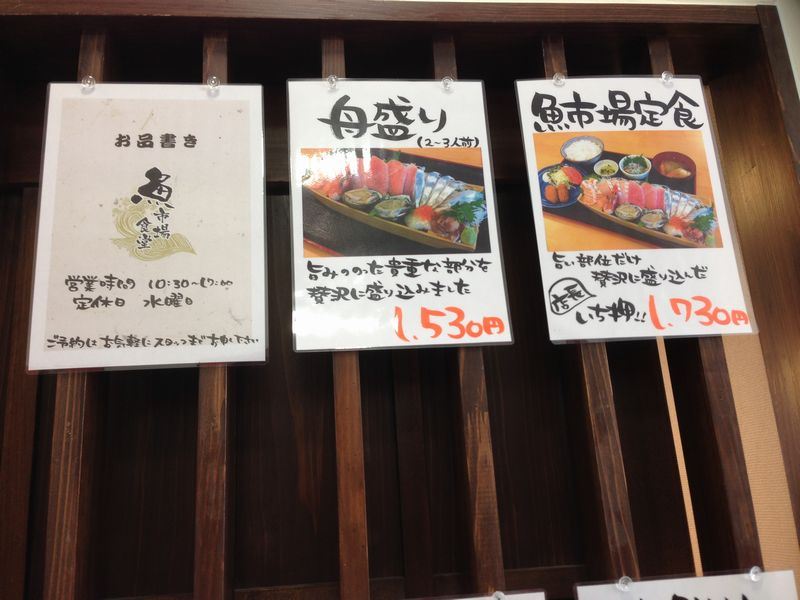 お品書き
魚市場食堂
営業時間 10:30〜17:00
定休日 水曜日
ご予約はお気軽にスタッフまでお申し下さい
舟盛り
(2〜3人前)
旨みののった貴重な部分を
贅沢に盛り込みました
1,530円
魚市場定食
旨い部位だけ
贅沢に盛り込んだ
店長
いち押!! 1,730円